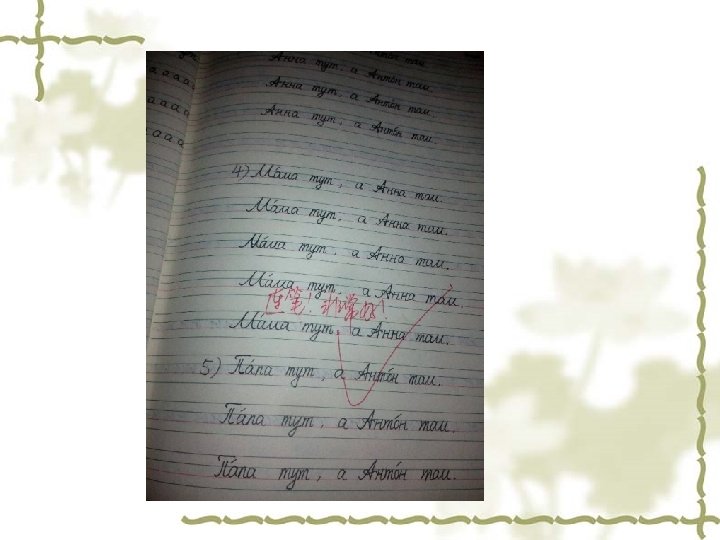 а а а а Анна тут, а Антон там.
а а а а Анна тут, а Антон там.
а а а Анна тут, а Антон там.
4) Ма́ма тут, а Анна там.
Ма́ма тут, а Анна там.
Ма́ма тут, а Анна там.
Ма́ма тут, а Анна там.
Ма́ма тут, а Анна там.
5) Па́па тут, а Анто́н там.
Па́па тут, а Анто́н там.
Па́па тут, а Анто́н там.